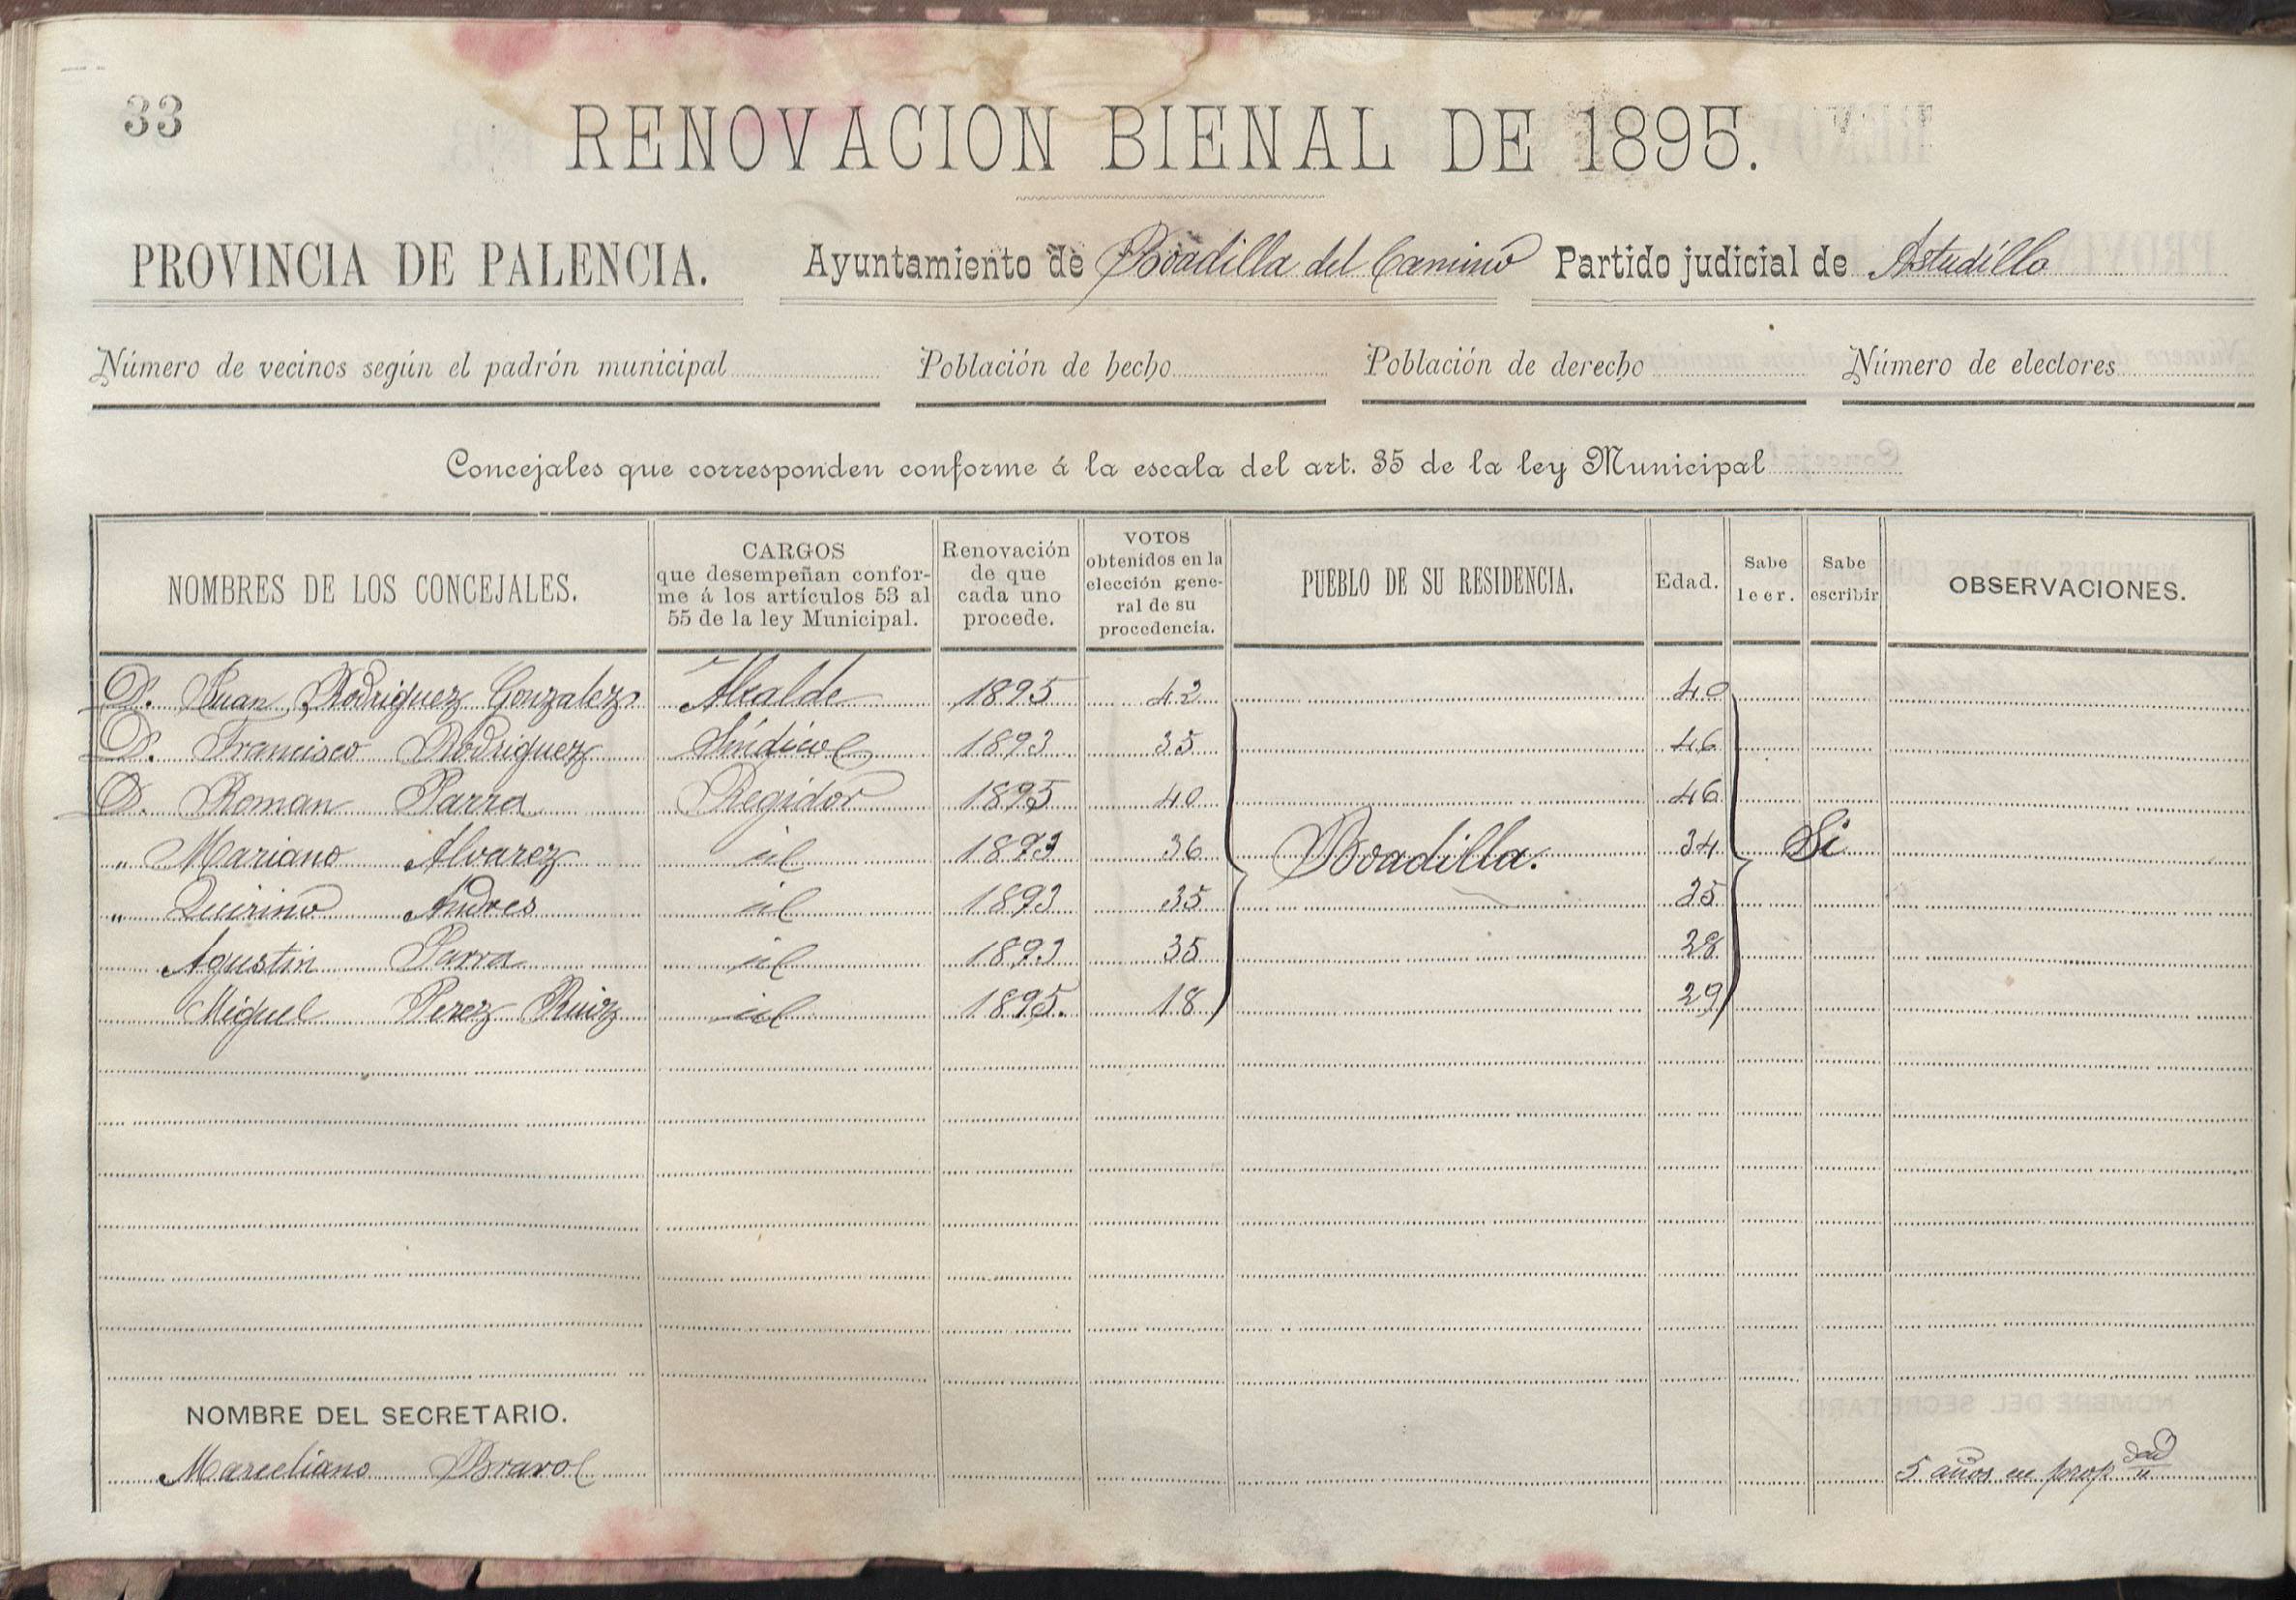 33
RENOVACION BIENAL DE 1895.
PROVINCIA DE PALENCIA. Ayuntamiento de Boadilla del Camino Partido judicial de Astudillo
Número de vecinos según el padrón municipal Población de hecho Población de derecho Número de electores
Concejales que corresponden conforme á la escala del art. 35 de la ley Municipal
NOMBRES DE LOS CONCEJALES. CARGOS que desempeñan confor-me á los artículos 53 al 55 de la ley Municipal. Renovación de que cada uno procede. VOTOS obtenidos en la elección gene-ral de su procedencia. PUEBLO DE SU RESIDENCIA. Edad. Sabe leer. Sabe escribir OBSERVACIONES.
D. Juan Rodriguez Gonzalez Alcalde 1895 42 40
D. Francisco Rodriguez Síndico 1893 35 46
D. Roman Parra Regidor 1895 40 46
" Mariano Alvarez id 1893 36 Boadilla. 34 Si
" Quirino Andres id 1893 35 35
Agustin Parra id 1893 35 28
Miguel Perez Ruiz id 1895. 18 29
NOMBRE DEL SECRETARIO.
Marceliano Bravo 5 años en propdad